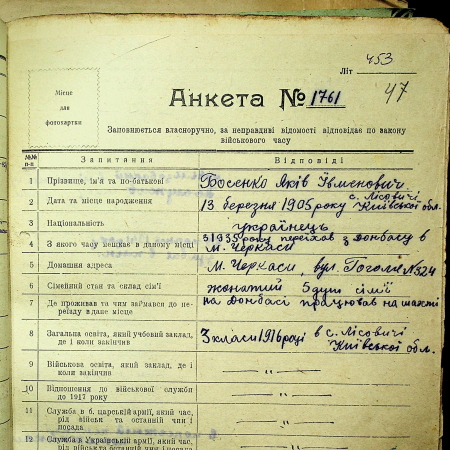 Літ 453
47
Місце
для
фотокартки
Анкета № 1761
Заповнюється власноручно, за неправдиві відомості відповідає по закону
військового часу
№№ п-п Запитання Відповіді
1 Прізвище, ім'я та по-батькові Босенко Яків
2 Дата та місце народження 13 березня 1905 року с. Лісовичі
Київської обл.
3 Національність українець
4 З якого часу мешкає в даному місці з 1935 року переїхав з Донбасу в
м. Черкаси
5 Домашня адреса м. Черкаси, вул. Гоголя № 324
6 Сімейний стан та склад сім'ї жонатий 5 душ сім'ї
7 Де проживав та чим займався до пе-
реїзду в дане місце на Донбасі працював на шахті
8 Загальна освіта, який учбовий заклад,
де і коли закінчив 3 класи 1916 році в с. Лісовичі
Київської обл.
9 Військова освіта, який заклад, де і
коли закінчив — „ —
10 Відношення до військової служби
до 1917 року — „ —
11 Служба в б. царській армії, який час,
рід військ та останній чин і
посада — „ —
12 Служба в Українській армії, який час,
рід військ та останній чин і посада — „ —